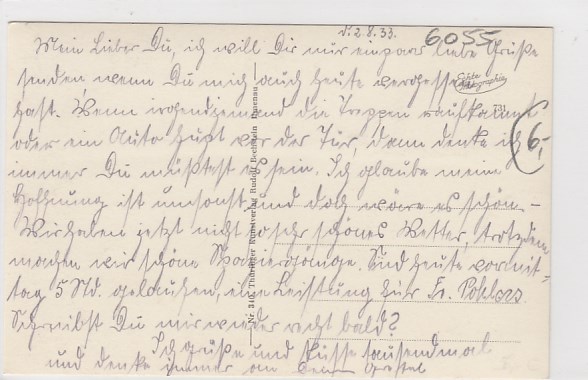 d. 2.8.33.
6055
Mein Lieber Du, ich will Dir nur ein paar liebe Grüße
senden wenn Du mich auch heute vergessen
Echte Photographie
hast. Wenn irgendjemand die Treppen raufkommt
731
oder ein Auto hupt vor der Tür, dann denke ich
6,-
immer Du müßtest es sein. Ich glaube meine
Hoffnung ist umsonst und doch wäre es schön.-
Wir haben jetzt nicht sehr schönes Wetter, trotzdem
machen wir schöne Spaziergänge. Sind heute vormit-
tag 5 Std. gelaufen, eine Leistung für Fr. Pohlers
Schreibst Du mir wieder recht bald?
Ich grüße und küsse tausendmal
und denke immer an Gretel
Nr. Thüringer Kunstverlag Rudolf Bechstein, Ilmenau